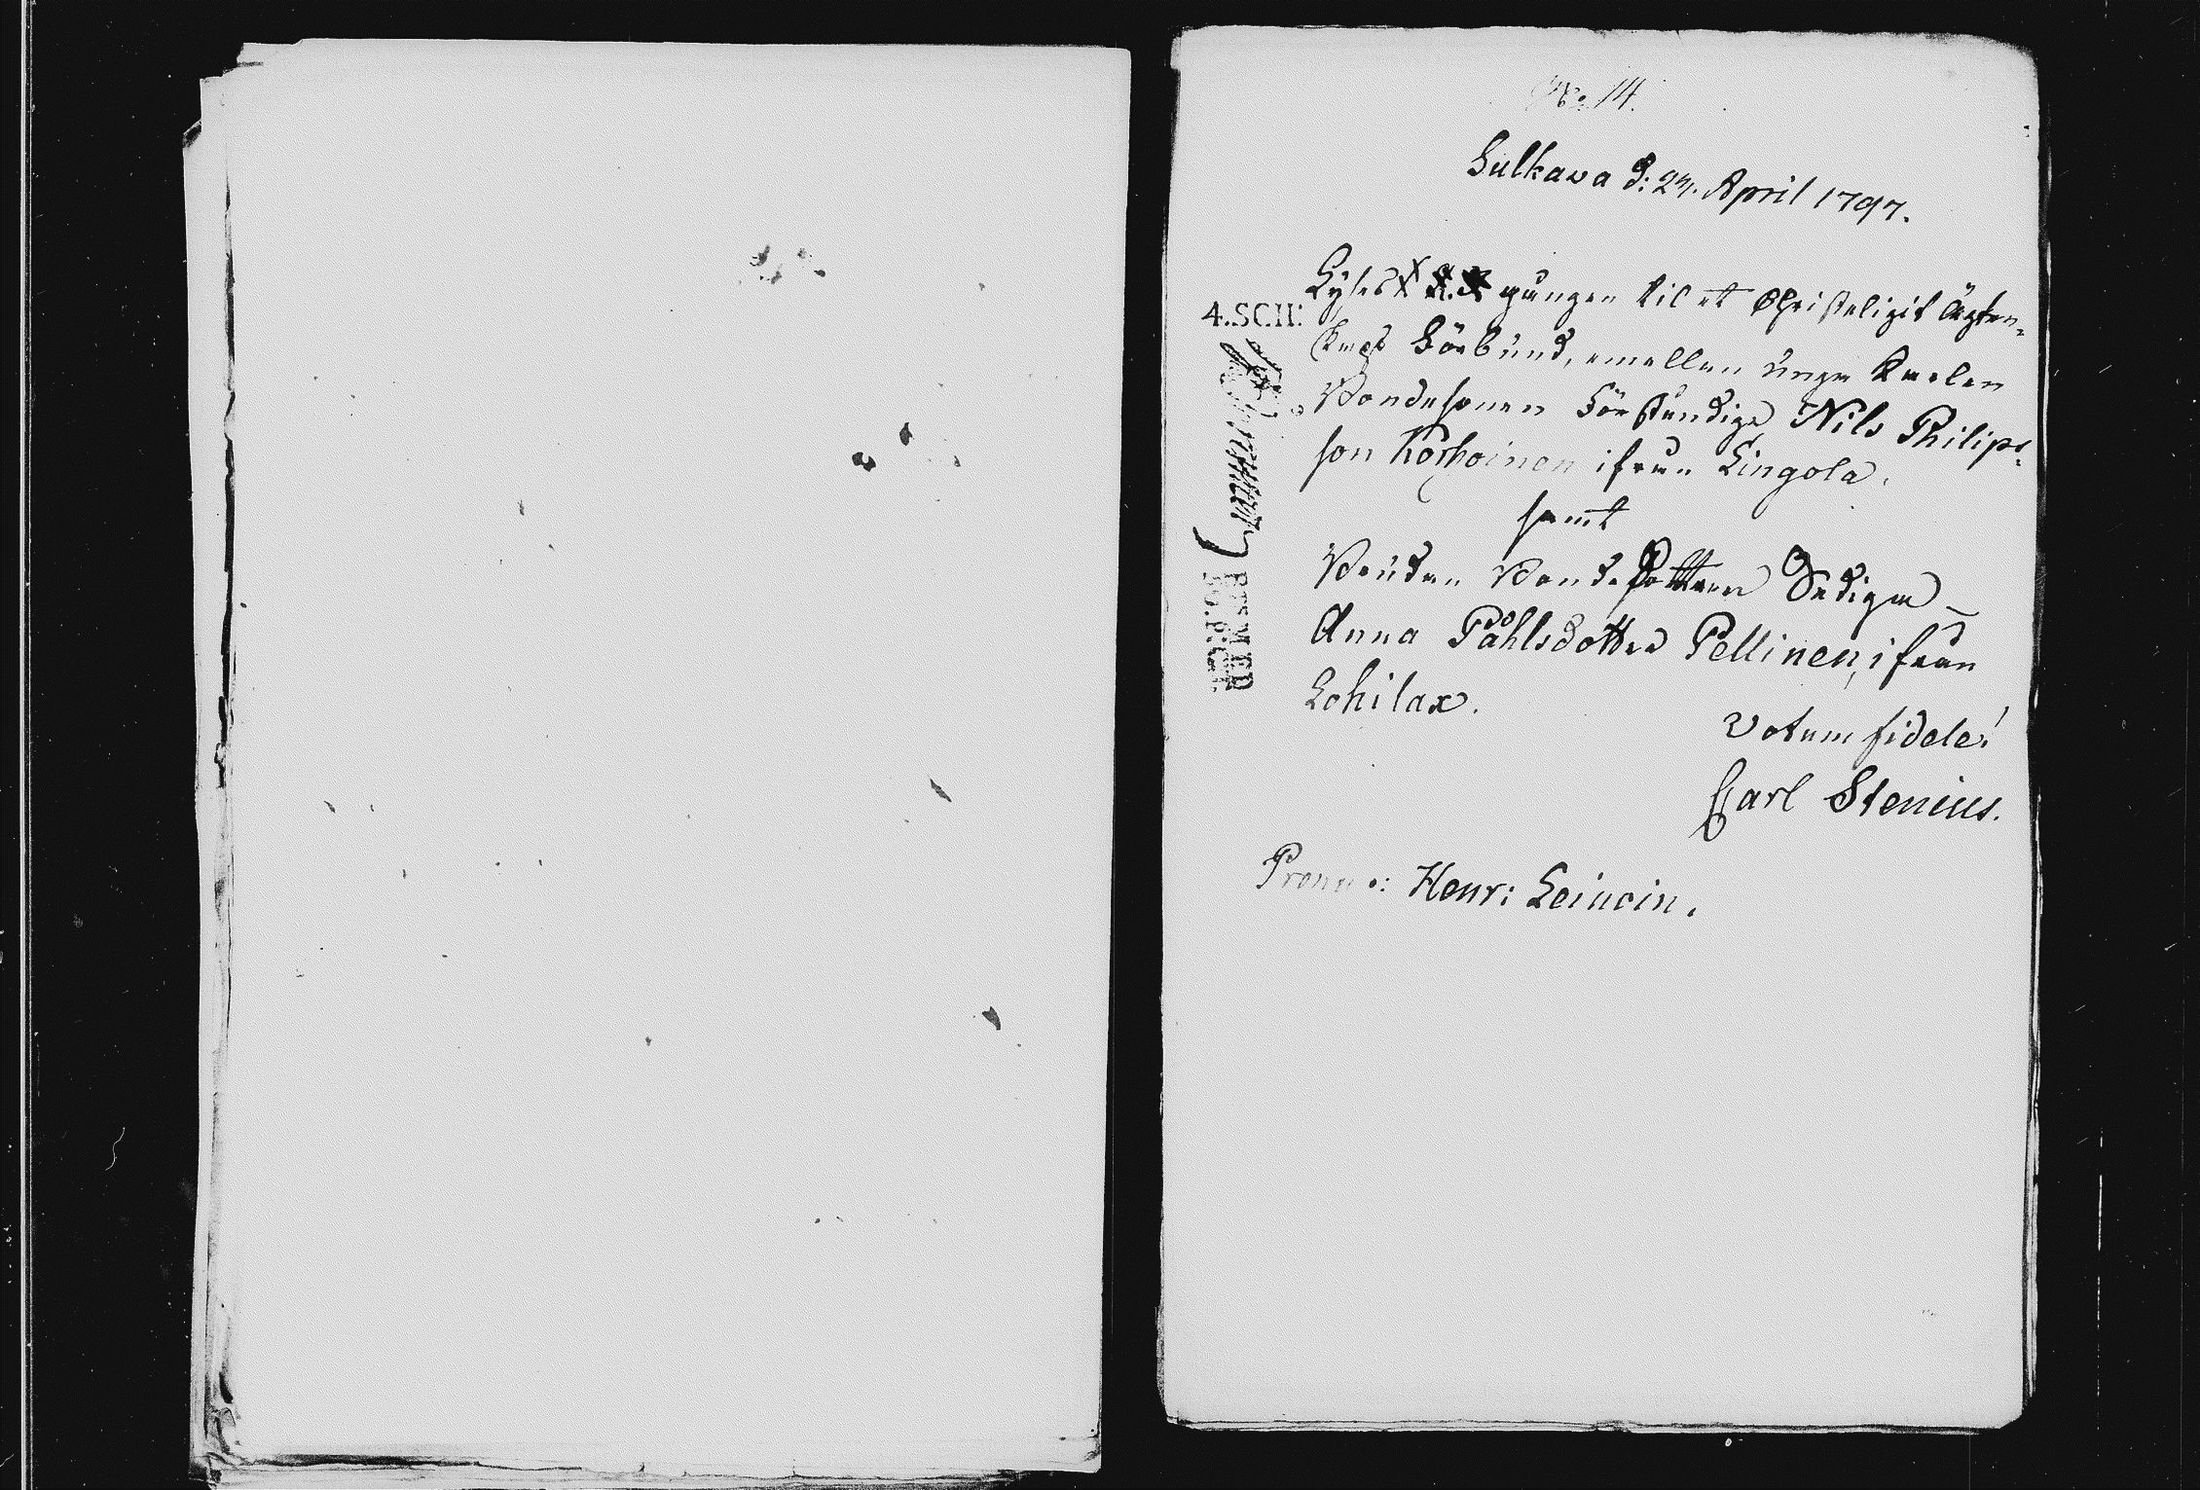 No. 14.
Sulkava d: 23. April 1797.
Lyses gången til et Christeligit Ägten-
skaps Förbund, emellan unga Karlen
Bondesonen Förståndige Nils Philips-
son Korhoinen ifrån Lingola,
samt
Bruden Bondedottren Sediga
Anna Påhlsdotter Pellinen, ifrån
Lohilax.
Votum fidele!
Carl Stenius.
Henr: Leinoin.
4.SCH: